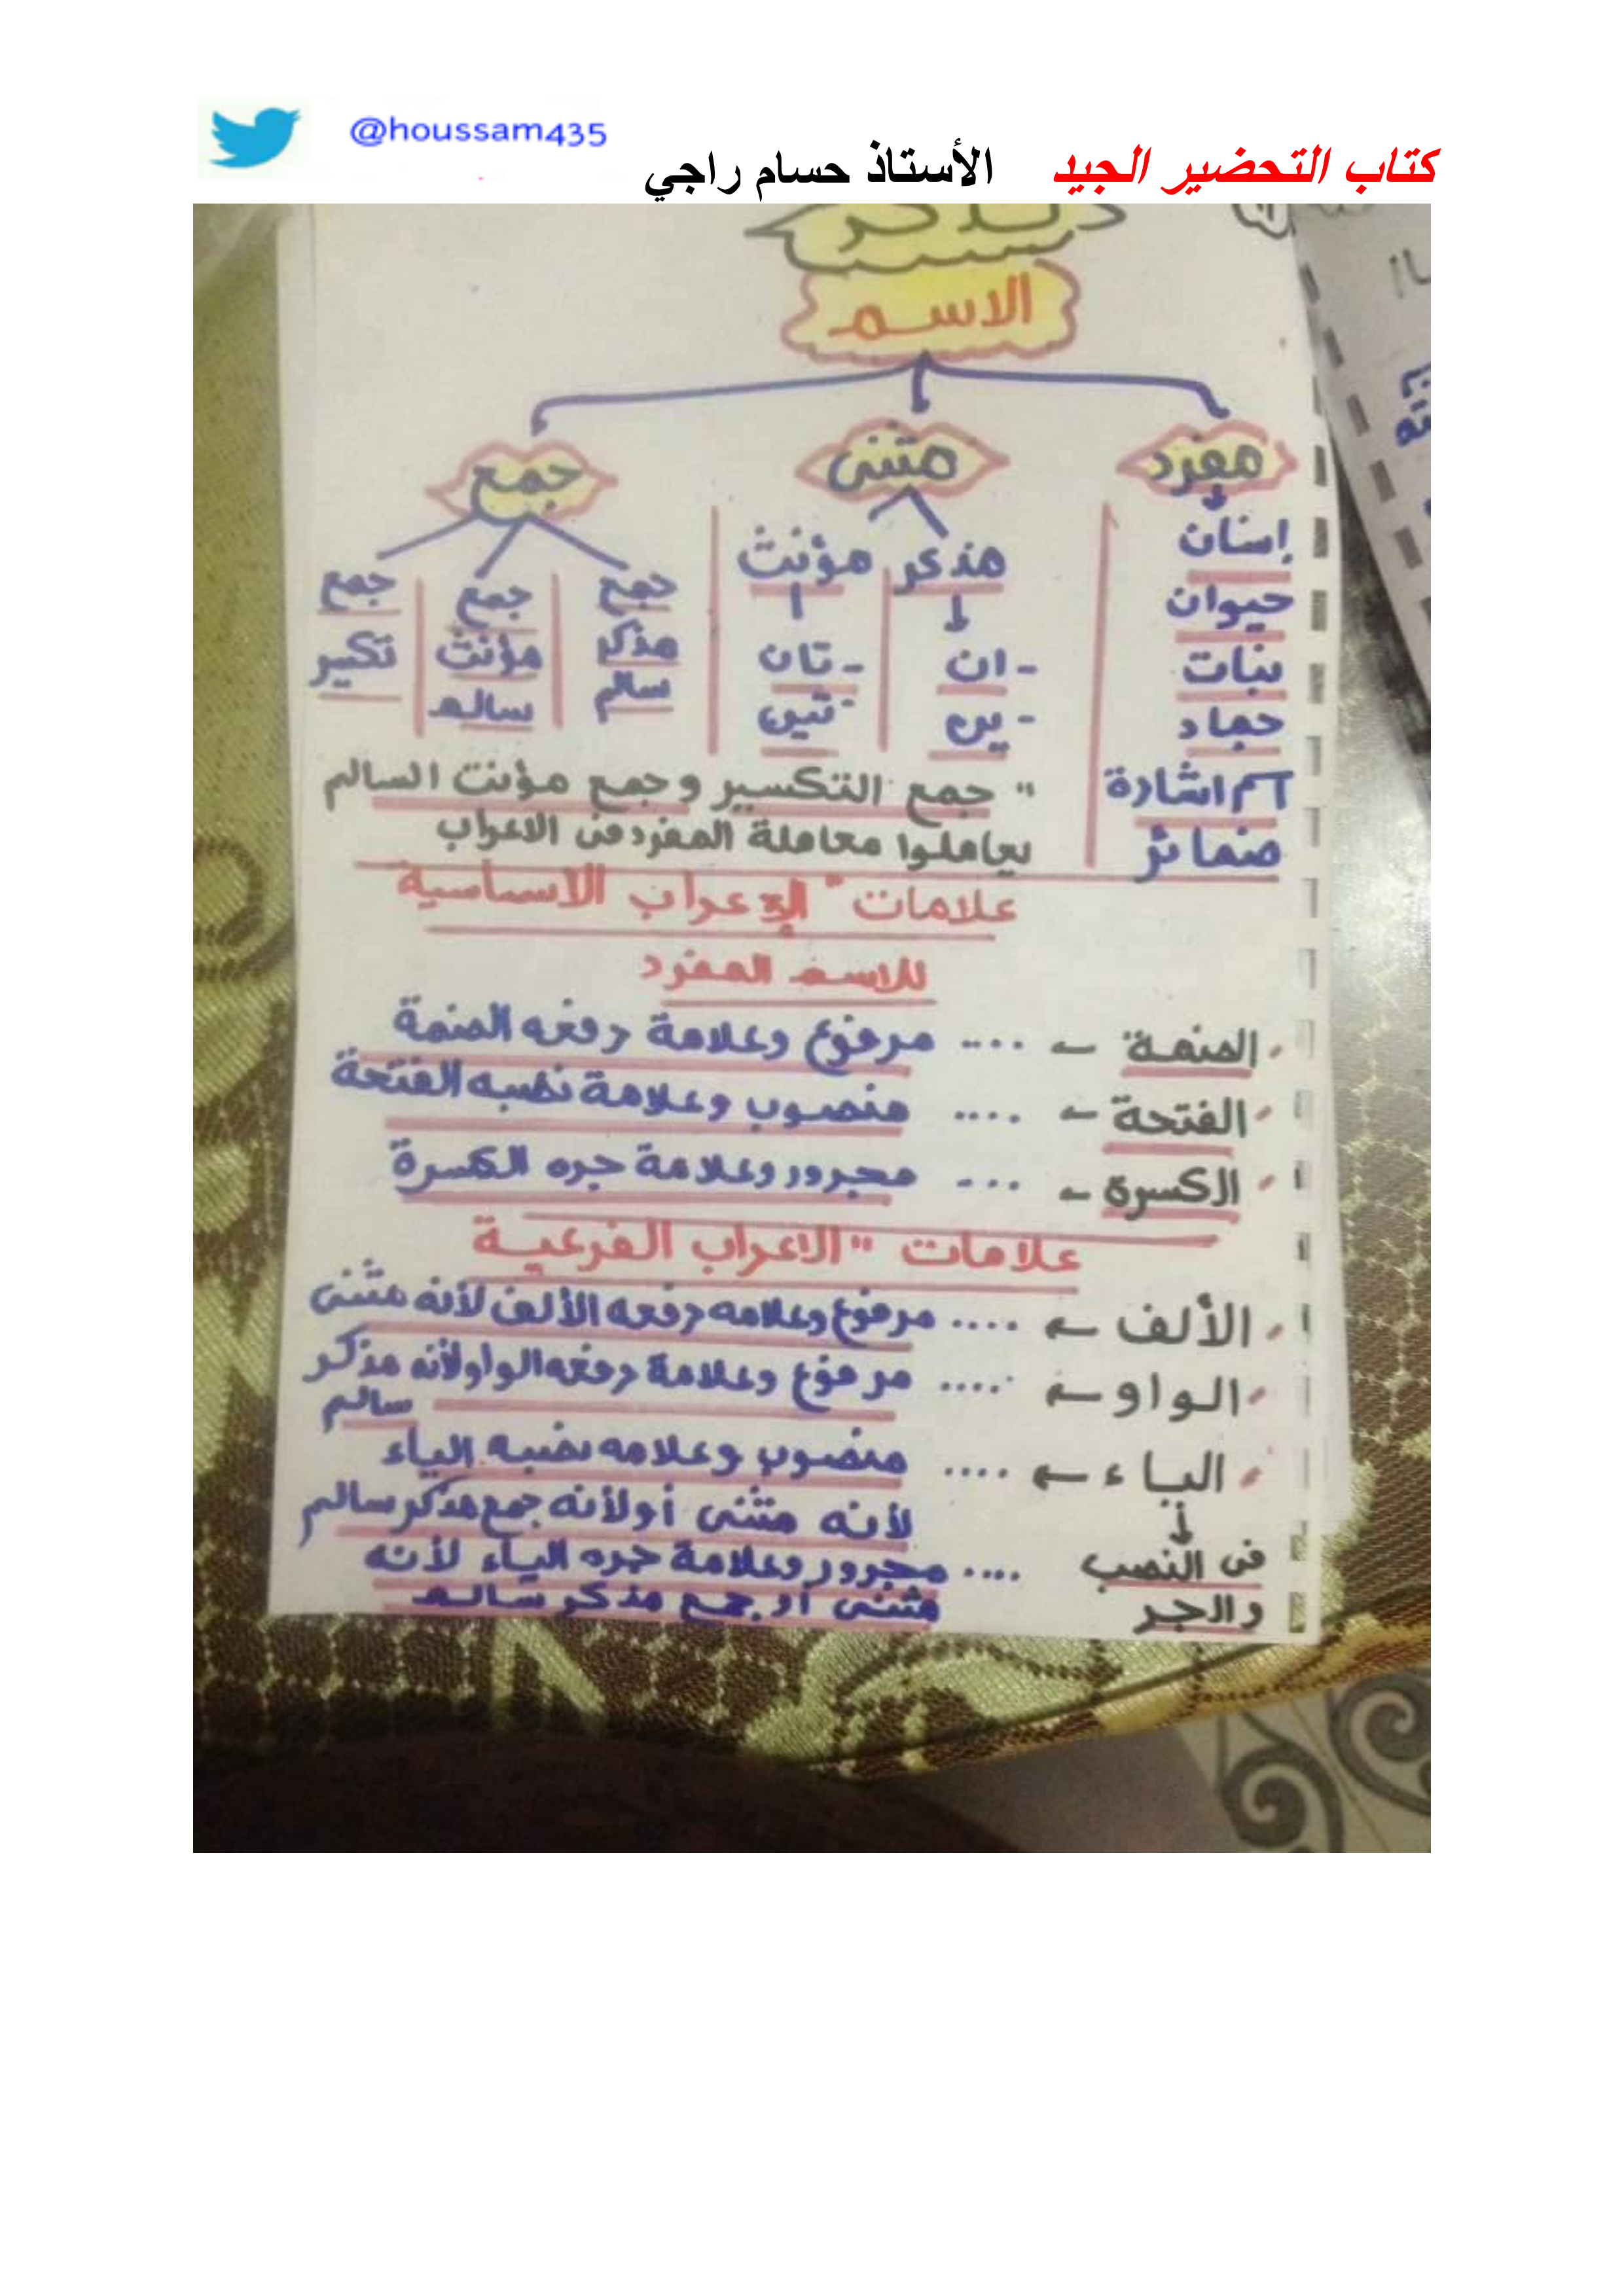 كتاب التحضير الجيد الأستاذ حسام راجي @houssam435
الاسم
مفرد مثنى جمع
إنسان
حيوان
نبات
جماد
اسم اشارة
ضمائر
مذكر مؤنث
- ان - تان
- ين - تين
جمع مذكر سالم
جمع مؤنث سالم
جمع تكسير
" جمع التكسير وجمع مؤنث السالم
يعاملوا معاملة المفرد فى الاعراب
علامات " الإعراب الأساسية
للاسم المفرد
الضمة ← .... مرفوع وعلامة رفعه الضمة
الفتحة ← .... منصوب وعلامة نصبه الفتحة
الكسرة ← .... مجرور وعلامة جره الكسرة
علامات " الاعراب الفرعية
الألف ← .... مرفوع وعلامه رفعه الألف لأنه مثنى
الواو ← .... مرفوع وعلامة رفعه الواو لأنه مذكر
سالم
الياء ← .... منصوب وعلامه نصبه الياء
↓ لأنه مثنى أو لأنه جمع مذكر سالم
فى النصب .... مجرور وعلامة جره الياء لأنه
والجر مثنى أو جمع مذكر سالم